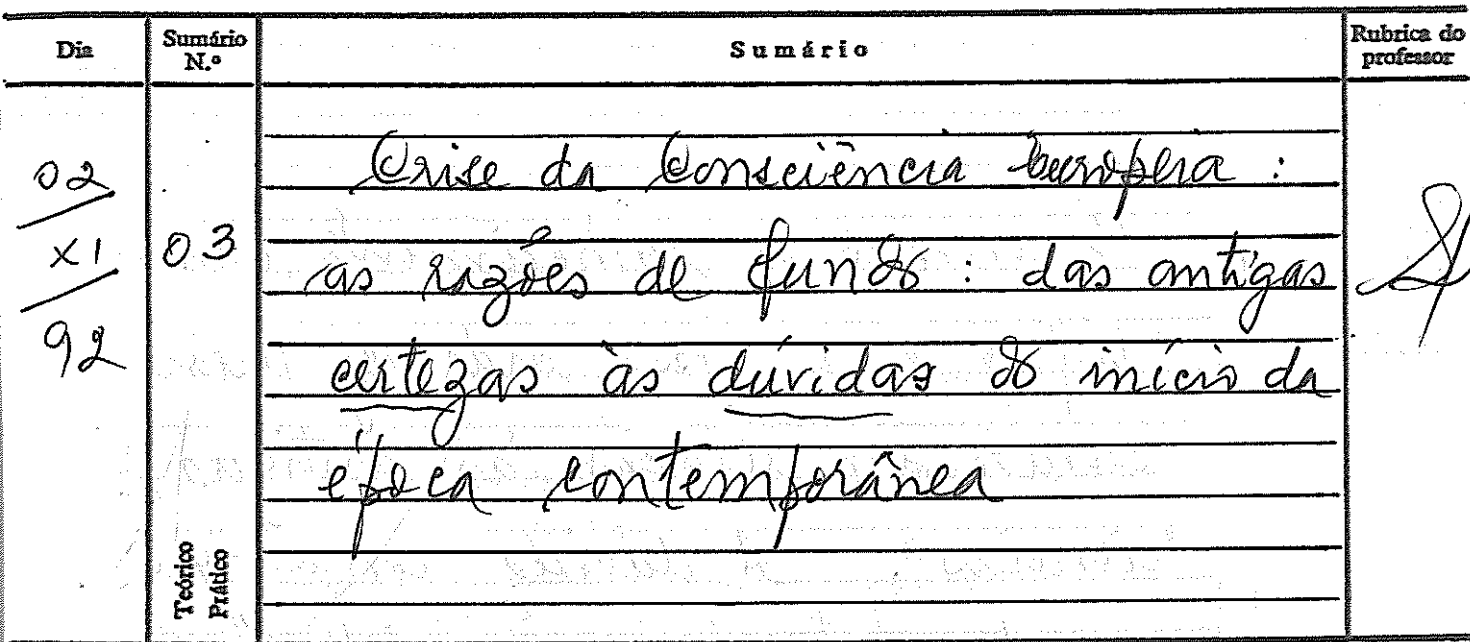 Dia Sumário N.º Sumário Rubrica do professor
02 / XI / 92
03
Crise da Consciência Europeia :
as razões de fundo : das antigas
certezas às dúvidas do início da
época contemporânea
Teórico
Prático